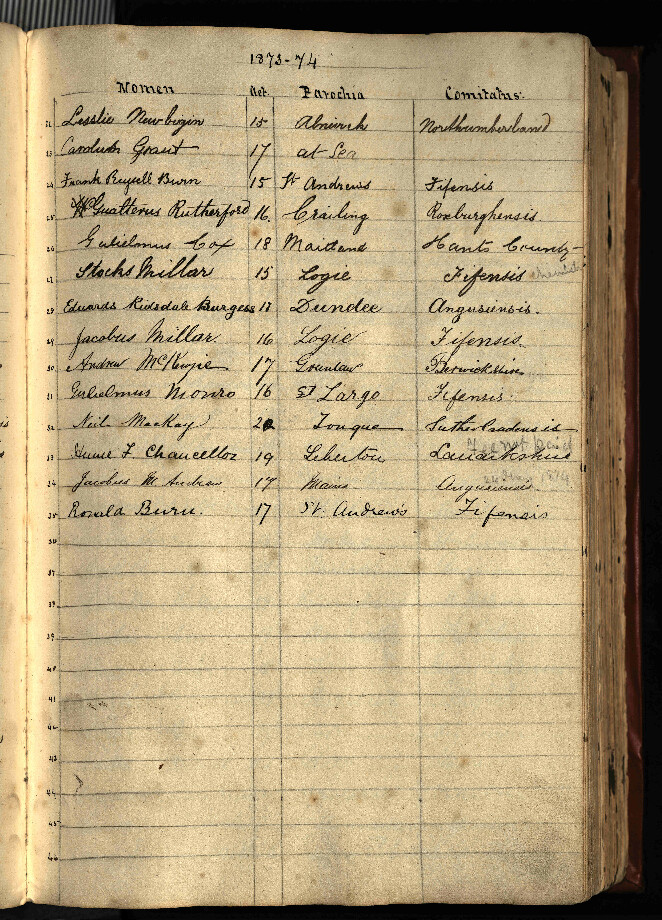 1873-74
Nomen Aet. Parochia Comitatus.
22 Lesslie Newbigin 15 Alnwick Northumberland
23 Grant 17 at Sea
24 Frank Russell Burn 15 St Andrews Fifensis
25 Gualterus Rutherford 16. Crailing Roxburghensis
26 Gulielmus Cox 18 Maitland Hants County
27 Stocks Millar 15 Logie Fifensis
28 Eduardus Kidsdale Burgess 17 Dundee Angusiensis.
29 Jacobus Millar. 16 Logie Fifensis
30 Andrew McKenzie 17 Greenlaw Berwickshire
31 Gulielmus Monro 16 St Largo Fifensis
32 Neil MacKay 20 Tongue Sutherlandensis
33 F. Chancellor 19 Liberton Lanarkshire
Fee not paid
34 Jacobus M Andrew 17 Mains Angusiensis
35 Ronald Burn. 17 St. Andrews Fifensis
36
37
38
39
40
41
42
43
44
45
46